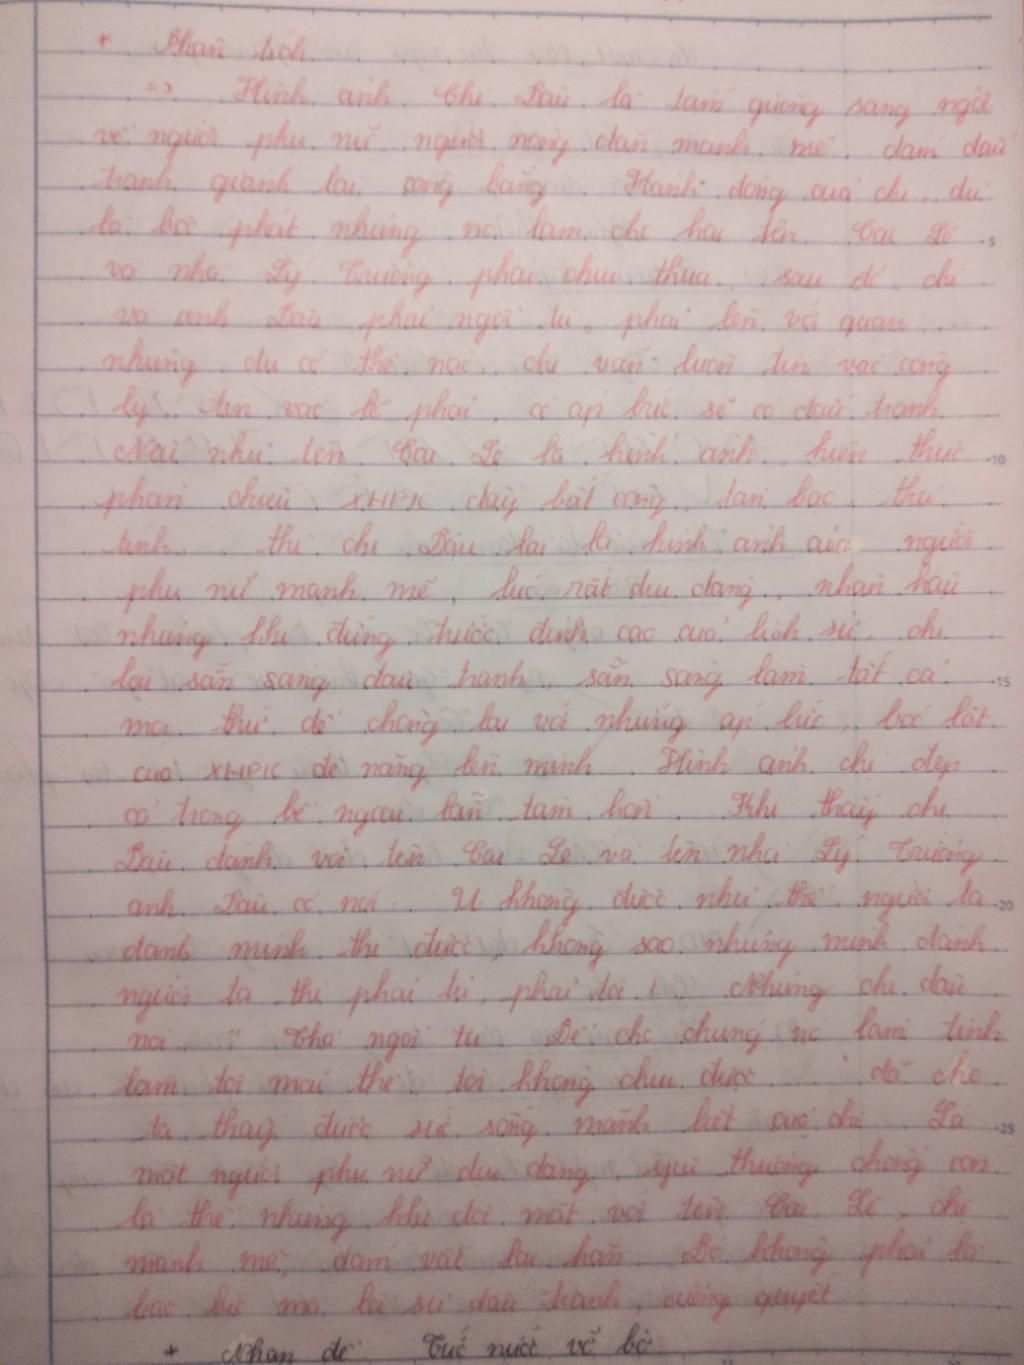 * Phân tích
=> Hình ảnh Chị Dậu là tấm gương sáng ngời
về người phụ nữ người nông dân mạnh mẽ, dám đấu
tranh giành lại công bằng. Hành động của chị dù
là bộc phát nhưng nó làm cho hai tên Cai Lệ
và nhà Lý Trưởng phải chịu thua, sau đó chị
và anh Dậu phải ngồi tù, phải lên với quan ...
nhưng dù có thế nào chị vẫn luôn tin vào công
lý, tin vào lẽ phải, có áp bức sẽ có đấu tranh.
Nếu như tên Cai Lệ là hình ảnh hiện thực
phản chiếu XHPK đầy bất công, tàn bạo, thú
tính thì chị Dậu lại là hình ảnh của người
phụ nữ mạnh mẽ, lúc rất dịu dàng, nhân hậu
nhưng khi đứng trước đỉnh cao của lịch sử chị
lại sẵn sàng đấu tranh, sẵn sàng làm tất cả
mọi thứ để chống lại với những áp bức, bóc lột
của XHPK đè nặng lên mình. Hình ảnh chị đẹp
cả trong bề ngoài lẫn tâm hồn. Khi thấy chị
Dậu đánh với tên Cai Lệ và tên nhà Lý Trưởng
anh Dậu có nói U không được như thế người ta
đánh mình thì được, không sao nhưng mình đánh
người ta thì phải tù, phải tội. Nhưng chị dậu
nói " Thà ngồi tù Để cho chúng nó làm tình
làm tội mãi thế tôi không chịu được ... " đã cho
ta thấy được sức sống mãnh liệt của chị. Là
một người phụ nữ dịu dàng, yêu thương chồng con
là thế nhưng khi đối mặt với tên Cai Lệ, chị
mạnh mẽ, dám vật lại hắn. Đó không phải là
bạo lực mà là sự đấu tranh, cương quyết
* Nhan đề Tức nước vỡ bờ